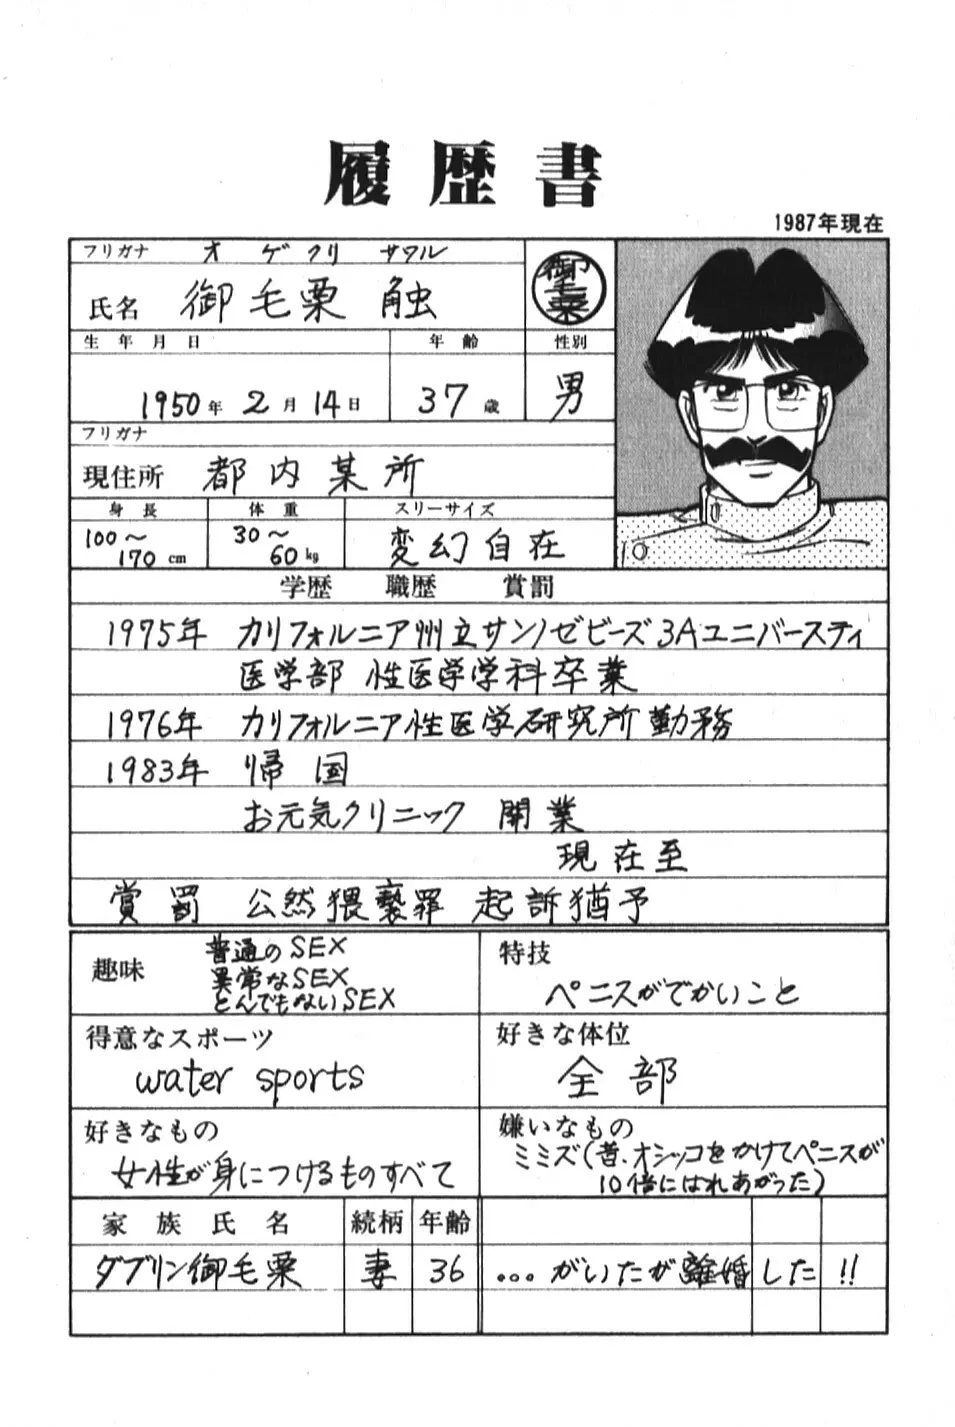 履歴書
1987年現在
フリガナ オゲクリ サワル
氏名 御毛栗 触
御毛栗
生年月日 年齢 性別
1950年 2月 14日 37歳 男
フリガナ
現住所 都内某所
身長 体重 スリーサイズ
100～170cm 30～60kg 変幻自在
学歴 職歴 賞罰
1975年 カリフォルニア州立サンノゼビーズ3Aユニバースティ
医学部 性医学学科卒業
1976年 カリフォルニア性医学研究所勤務
1983年 帰国
お元気クリニック 開業
現在至
賞罰 公然猥褻罪 起訴猶予
趣味 普通のSEX
異常なSEX
とんでもないSEX
特技
ペニスがでかいこと
得意なスポーツ
water sports
好きな体位
全部
好きなもの
女性が身につけるものすべて
嫌いなもの
ミミズ(昔、オシッコをかけてペニスが
10倍にはれあがった)
家族氏名 続柄 年齢
ダブリン御毛栗 妻 36 …がいたが離婚した!!